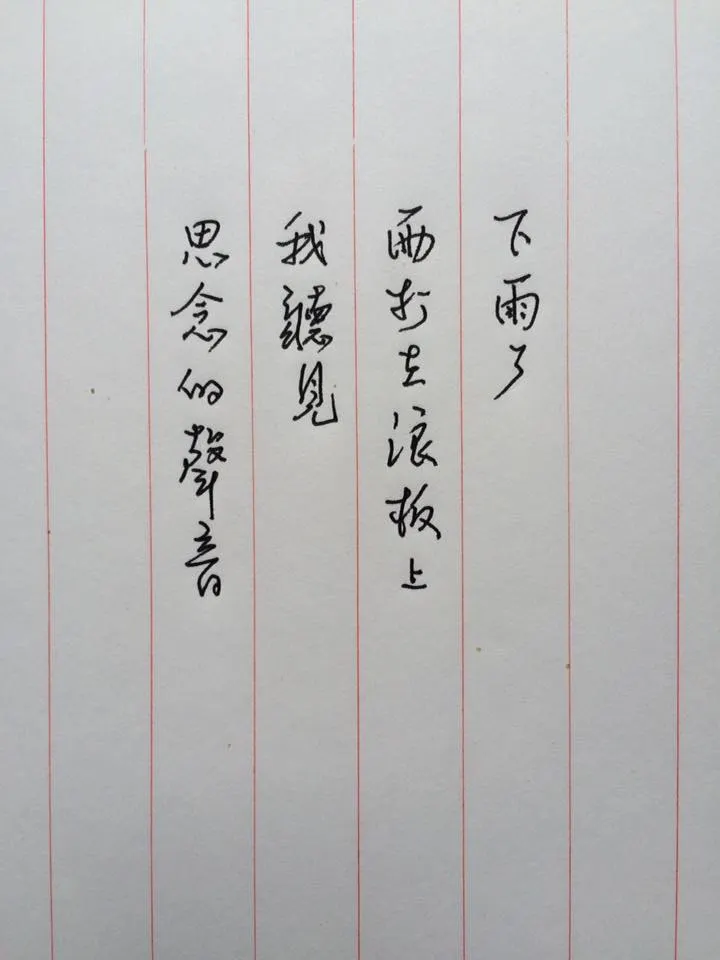 下雨了
雨打在浪板上
我聽見
思念的聲音